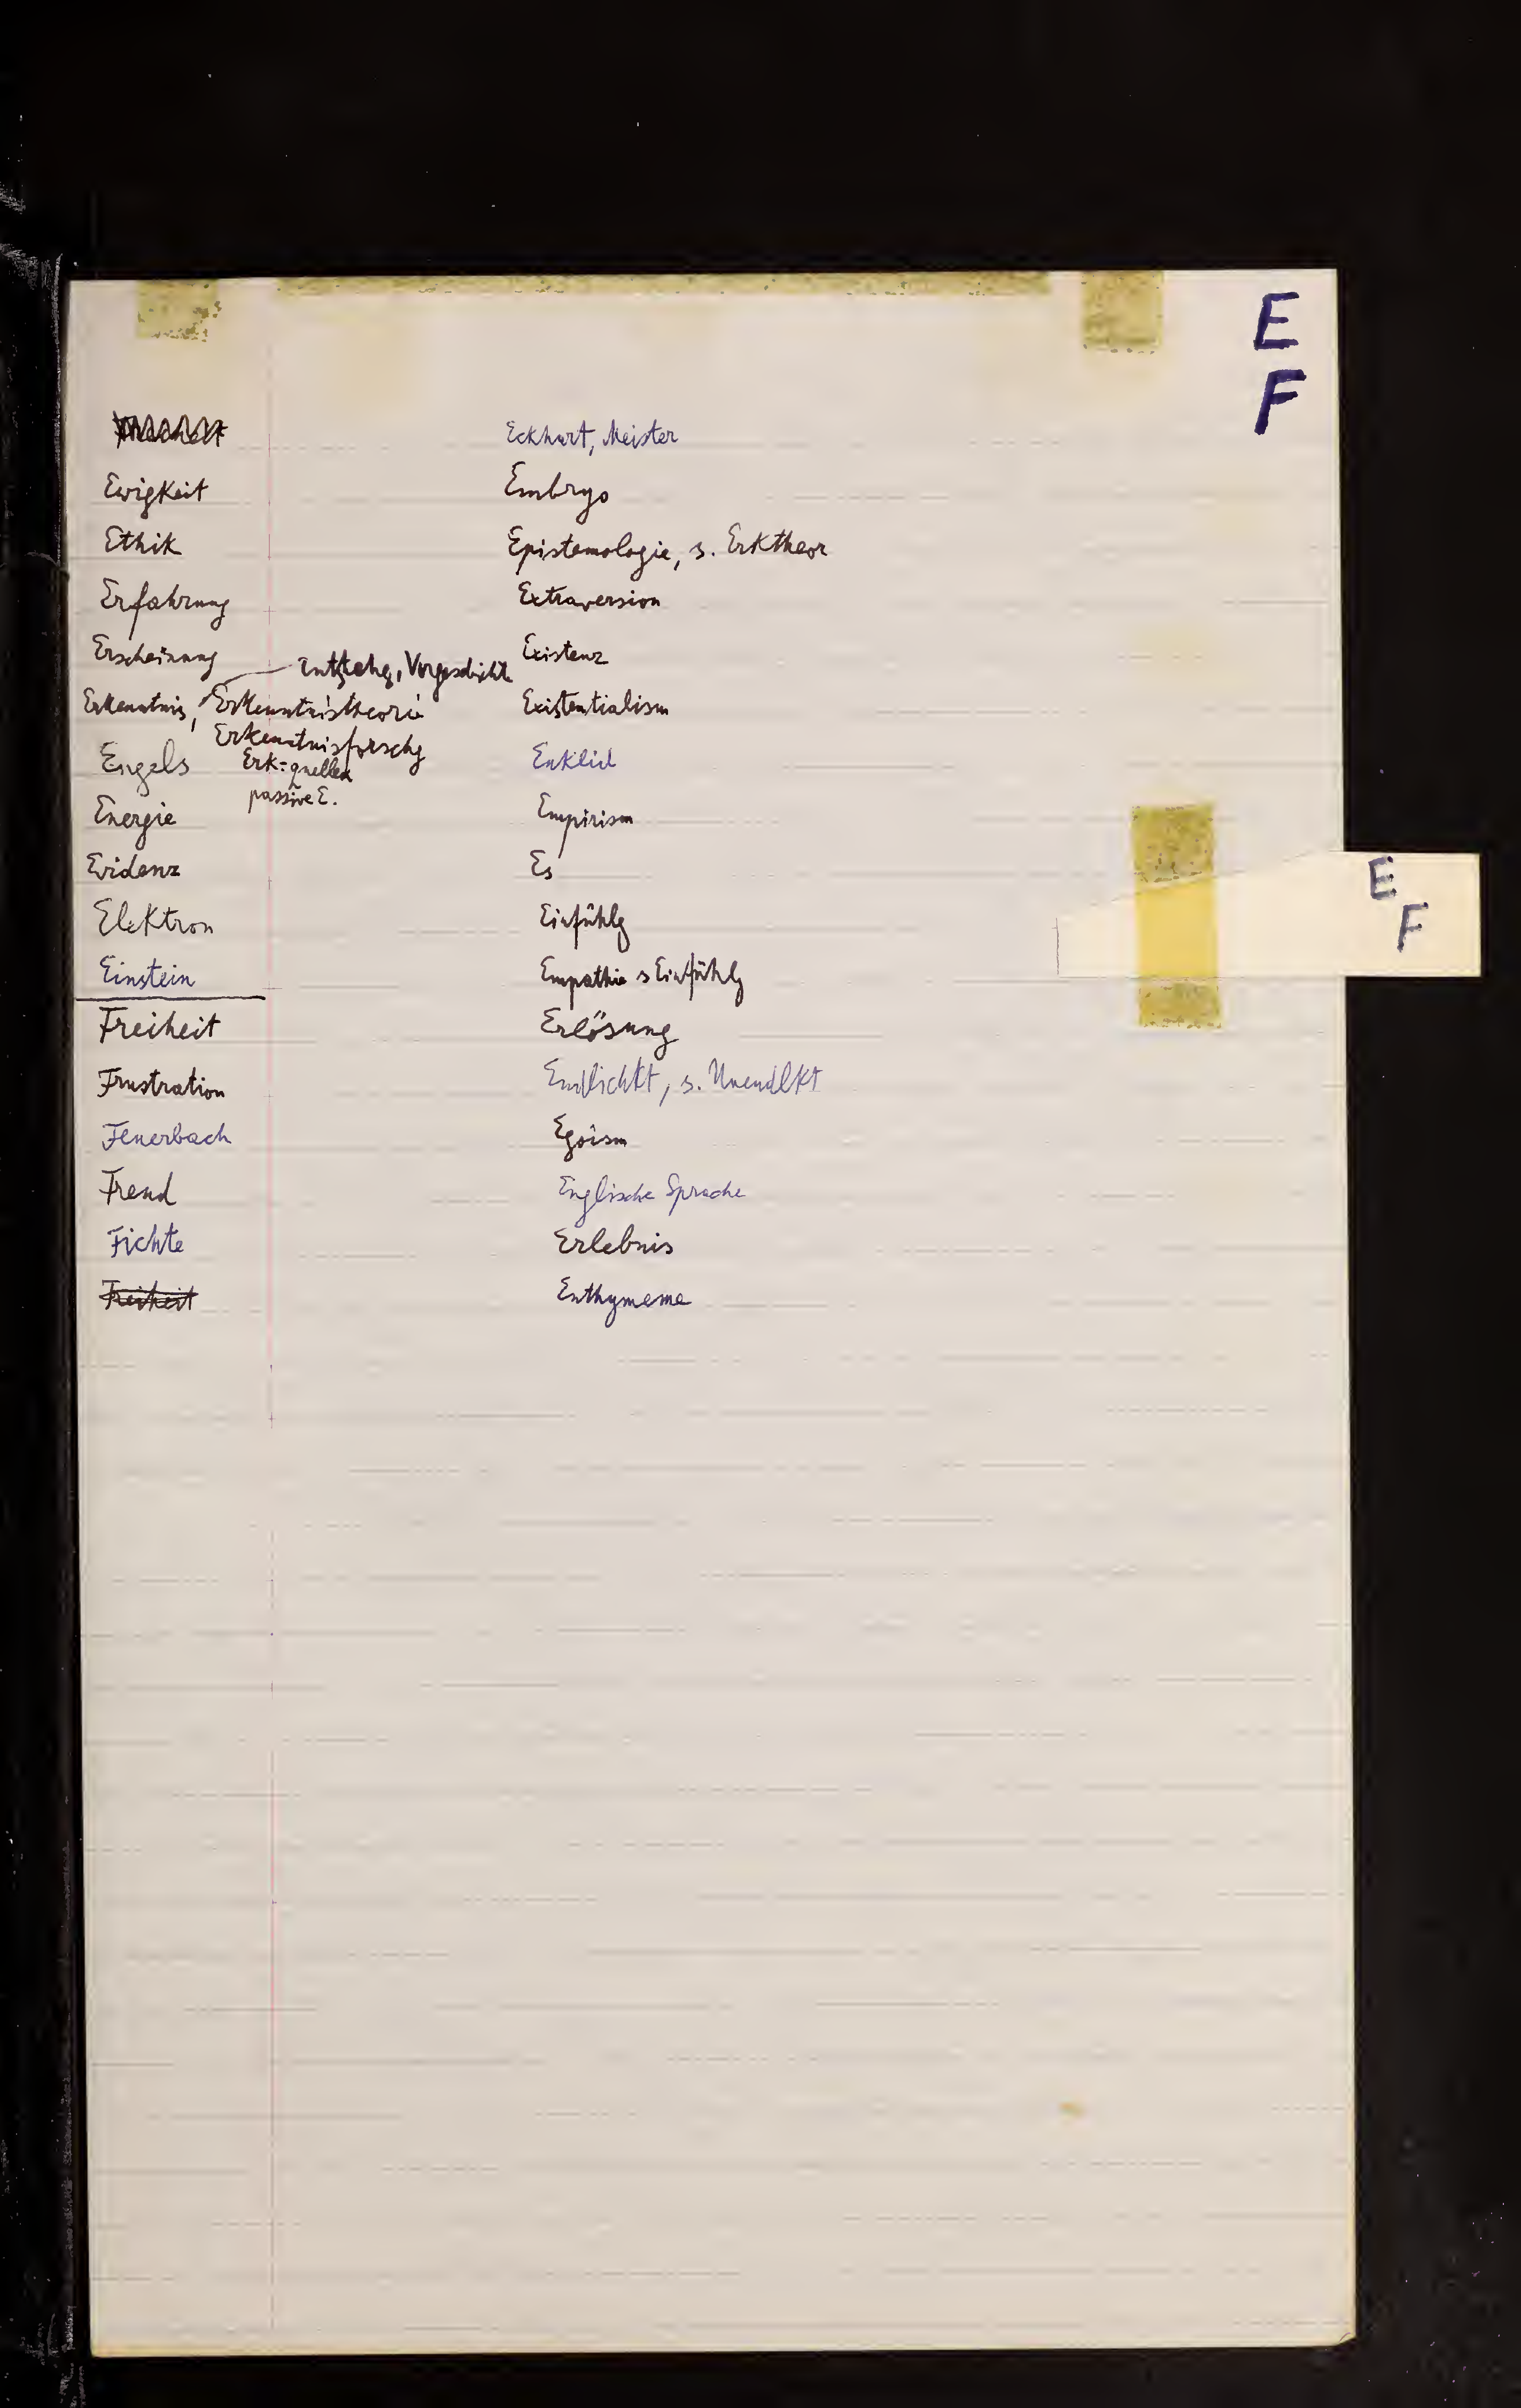 E
F
Ewigkeit
Ethik
Erfahrung
Erscheinung
Entstehg, Vorgeschicht
Erkenntnis, Erkenntnistheorie
Erkenntnisforschg
Engels
Erk=quellen
passive E.
Energie
Evidenz
Elektron
Einstein
Freiheit
Frustration
Feuerbach
Freud
Fichte
Freiheit
Eckhart, Meister
Embryo
Epistemologie, s. Erktheor
Extraversion
Existenz
Existentialism
Euklid
Empirism
Es
Einfühlg
Empathie s Einfühlg
Erlösung
Endlichkt, s. Unendlkt
Egoism
Englische Sprache
Erlebnis
Enthymeme
E
F